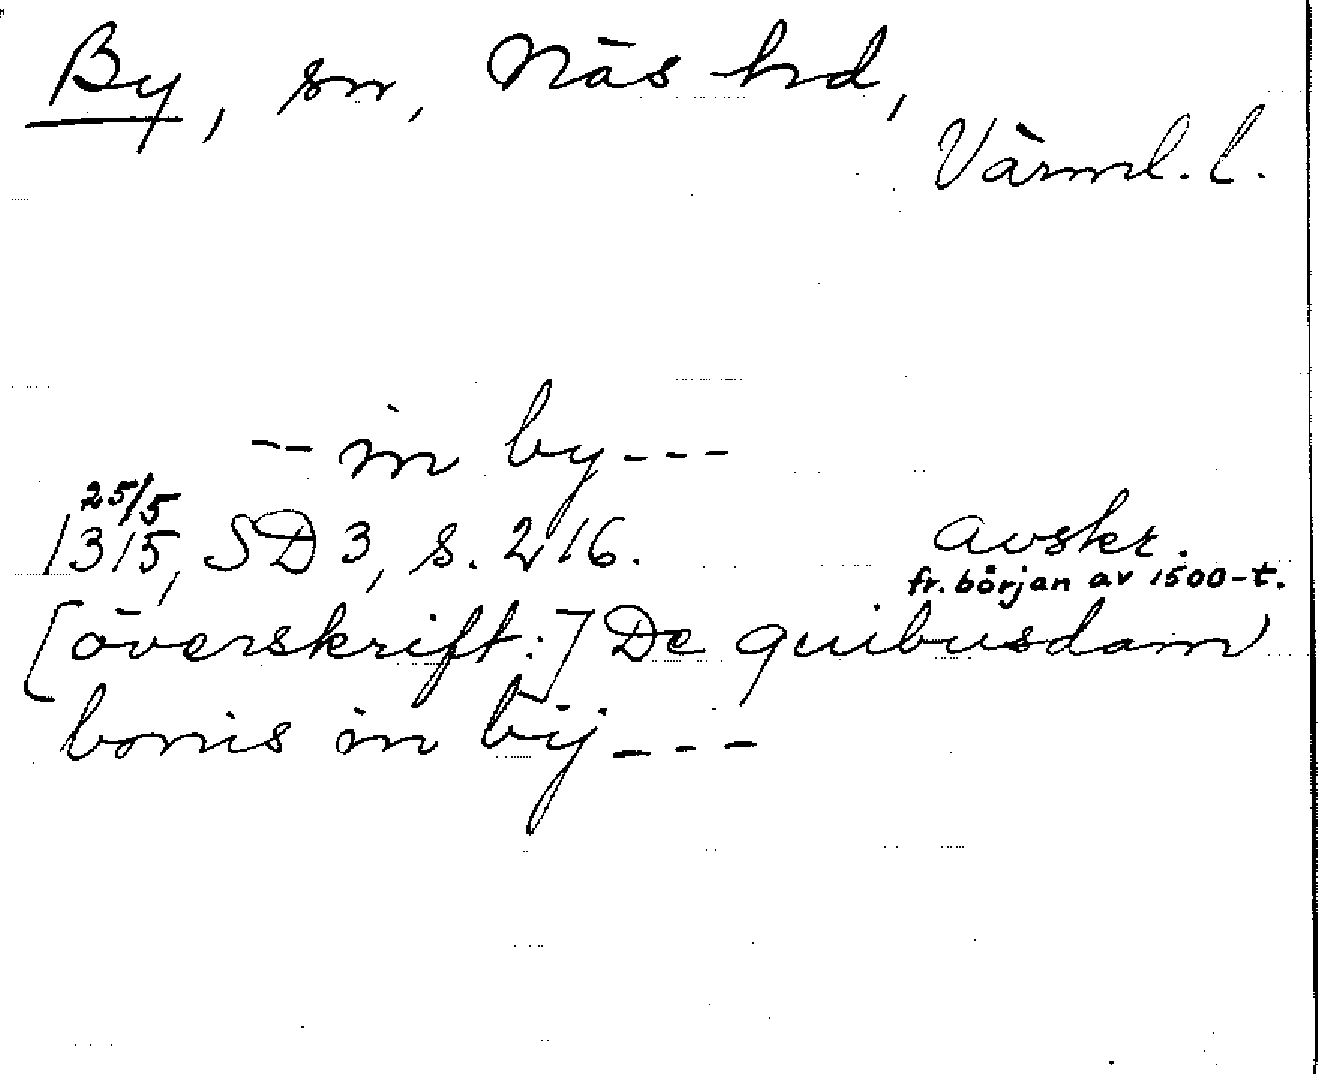 By, sn, Näs hd,
Värml. l.
-- in by ---
25/5
1315, SD 3, s. 216.
avskr.
fr. början av 1500-t.
[överskrift:] De quibusdam
bonis in bÿ ---